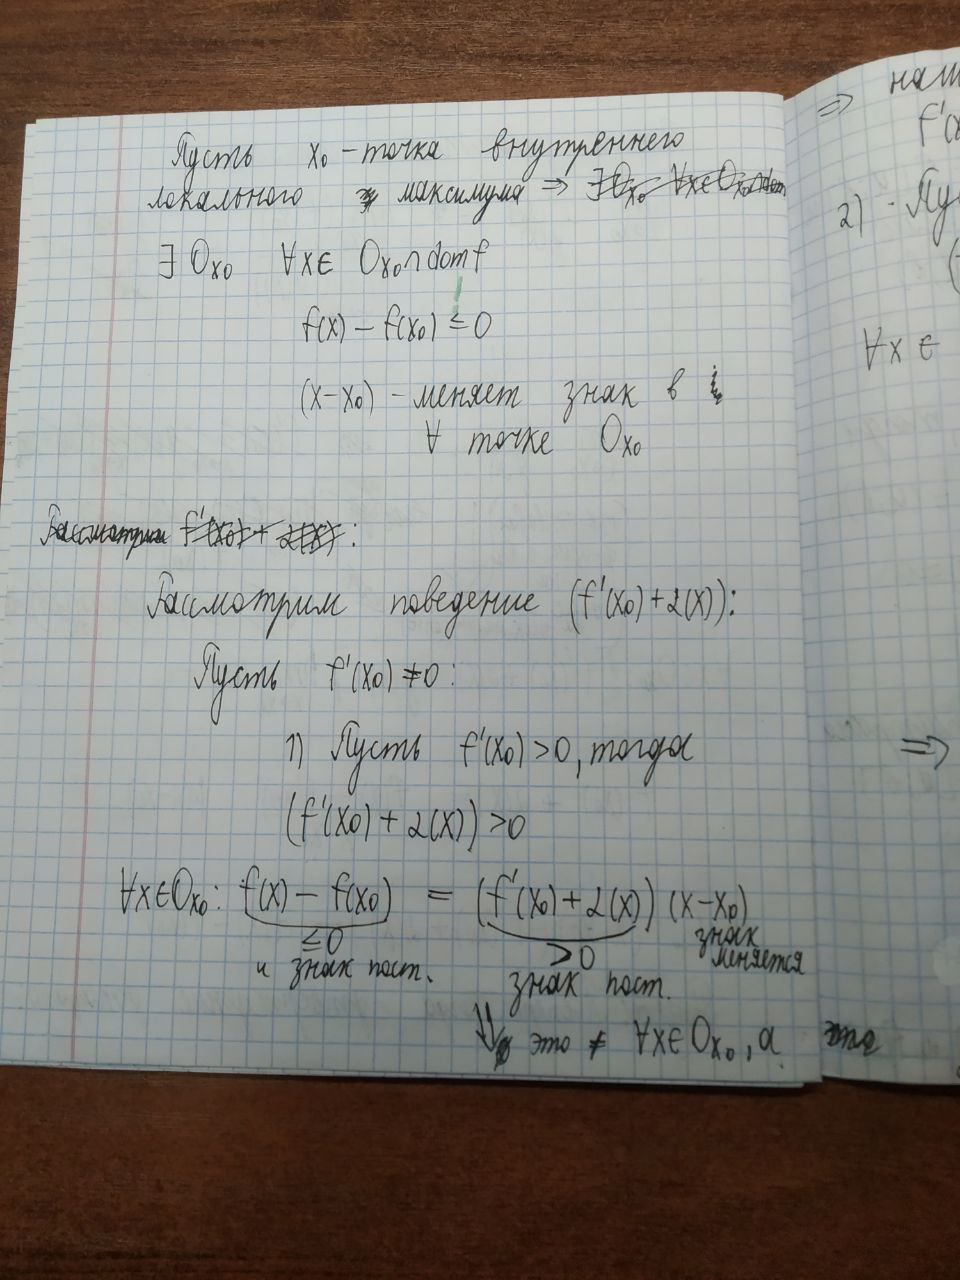 Пусть x₀ – точка внутреннего
локального максимума ⇒ ∃ Oₓ₀ ∀x∈Oₓ₀∩dom
∃ Oₓ₀ ∀x∈ Oₓ₀∩domf
!
f(x) – f(x₀) ≤ 0
(x–x₀) – меняет знак в
∀ точке Oₓ₀
Рассмотрим f'(x₀) + 2(x) :
Рассмотрим поведение (f'(x₀)+2(x)):
Пусть f'(x₀) ≠0 :
1) Пусть f'(x₀) >0, тогда
(f'(x₀) + 2(x)) >0
∀x∈Oₓ₀: f(x) – f(x₀) = (f'(x₀)+2(x)) (x–x₀)
≤0 >0 знак меняется
и знак пост. знак пост.
⇓ это ≠ ∀x∈Oₓ₀, а
⇒ наш
f'(x
2) Пус
(
∀x ∈
⇒